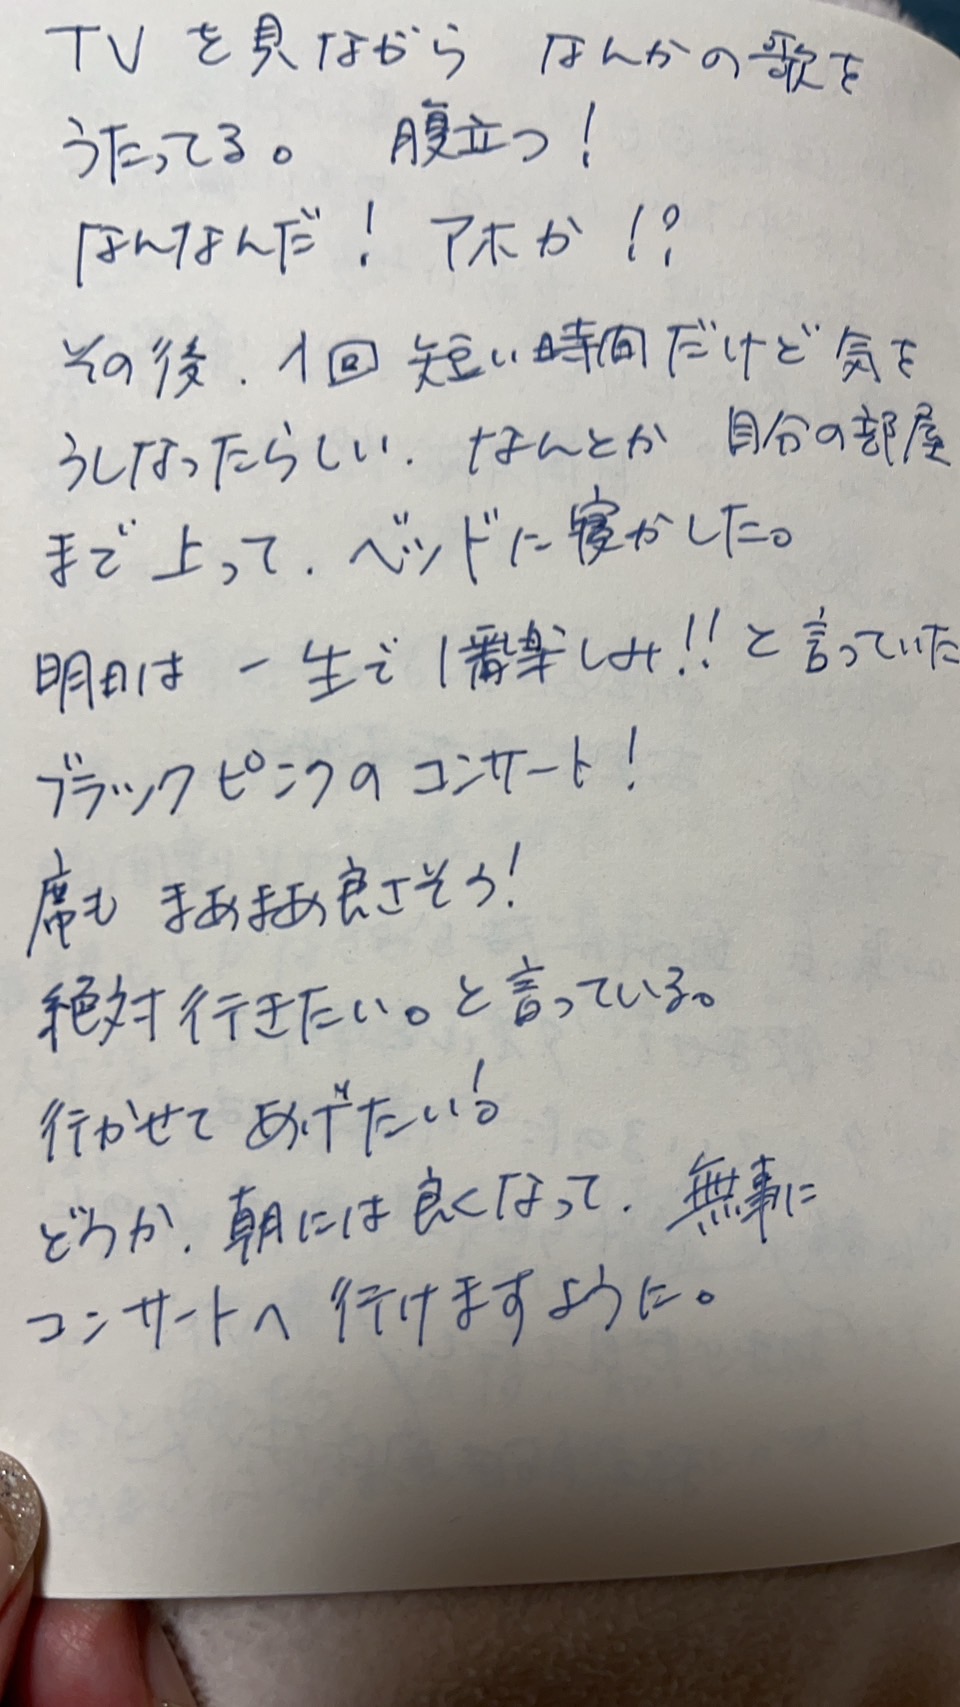 TVを見ながら なんかの歌を
うたってる。 腹立つ!
なんなんだ! アホか!?
その後、1回 短い時間だけど 気を
うしなったらしい、なんとか 自分の部屋
まで 上って、ベッドに寝かした。
明日は 一生で 1番楽しみ!! と 言っていた
ブラックピンクの コンサート!
席も まあまあ良さそう!
絶対行きたい。と言っている。
行かせて あげたい!。
どうか、朝には良くなって、無事に
コンサートへ 行けますように。